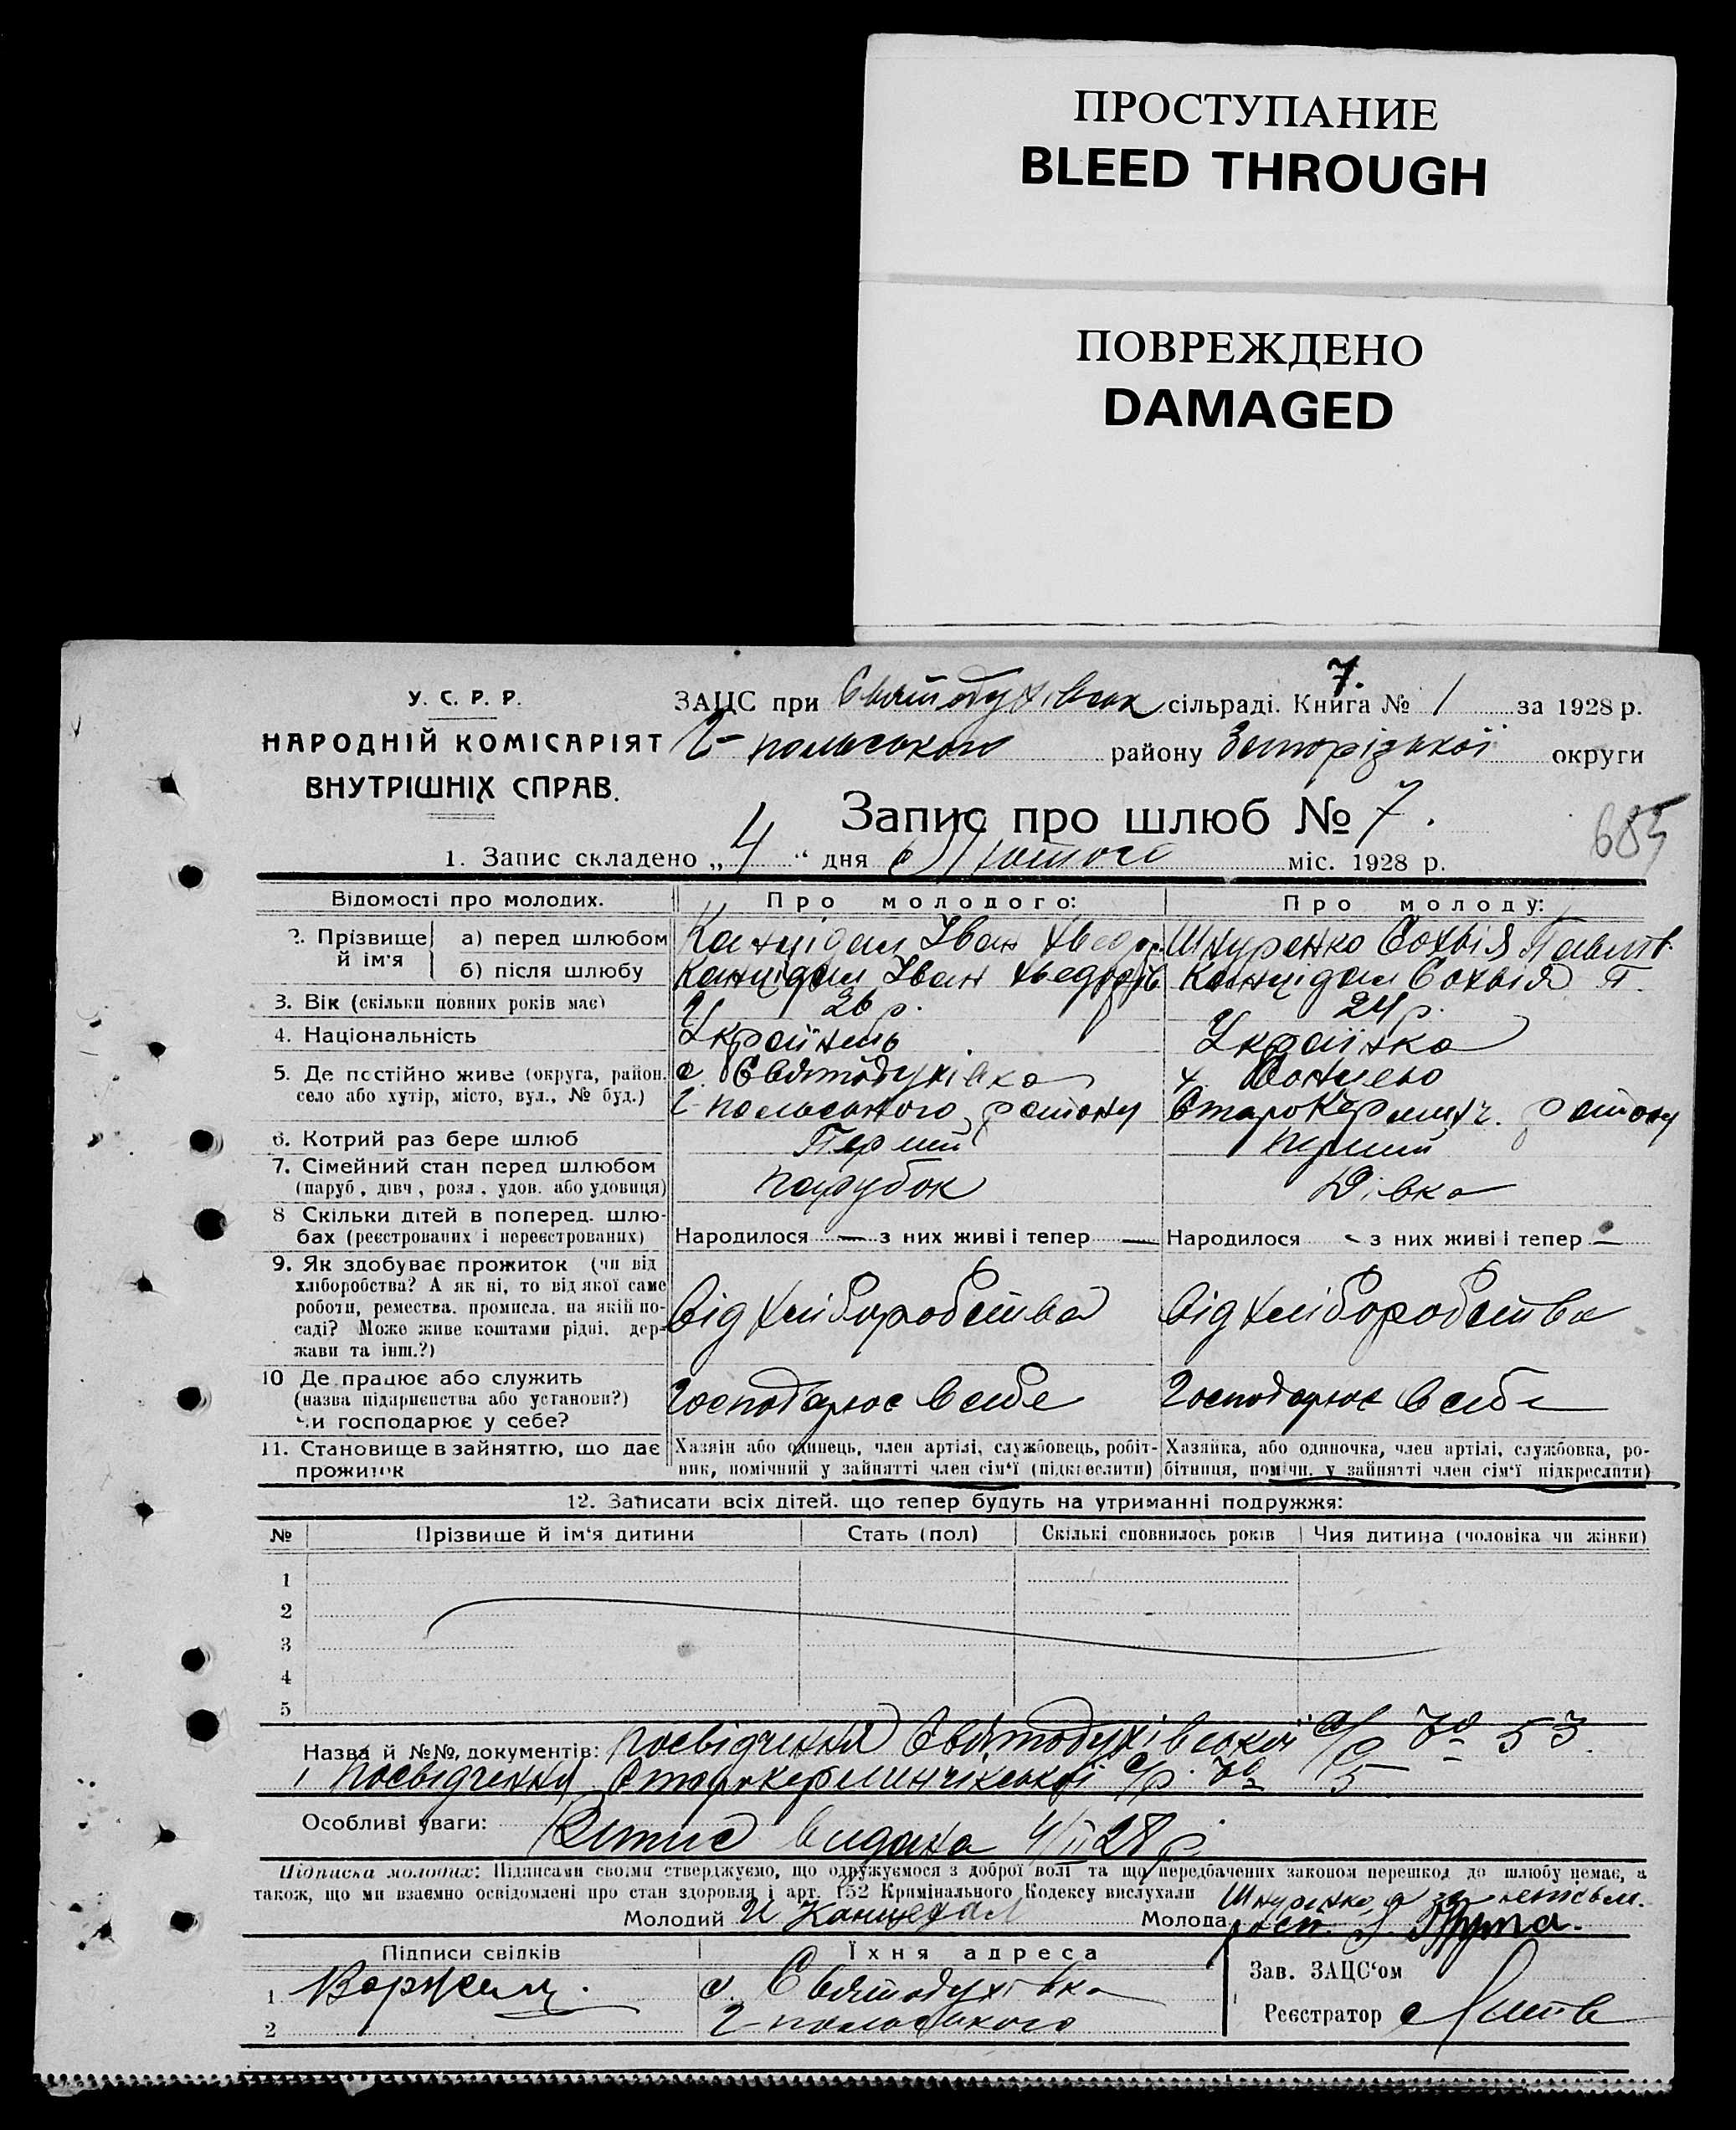 ПРОСТУПАНИЕ
BLEED THROUGH
ПОВРЕЖДЕНО
DAMAGED
7.
У. С. Р. Р.
НАРОДНІЙ КОМІСАРІЯТ
ВНУТРІШНІХ СПРАВ.
ЗАЦС при Святодухівськ сільраді. Книга № 1 за 1928 р.
Г-польського району Запорізької округи
Запис про шлюб № 7.
685
1. Запис складено „4“ дня Лютого міс. 1928 р.
Відомості про молодих. Про молодого: Про молоду:
2. Прізвище й ім'я
а) перед шлюбом Канцідал Іван Хведор. Шкуренко Сохвія Павлів.
б) після шлюбу Канцідал Іван Хведорів Канцідал Сохвія П.
3. Вік (скільки повних років має) 26 р. 24 р.
4. Національність Українець Українка
5. Де постійно живе (округа, район, с. Святодухівка х.
село або хутір, місто, вул., № буд.) Г-польського району Старокермечч. району
6. Котрий раз бере шлюб Перший перший
7. Сімейний стан перед шлюбом
(паруб., дівч., розл., удов. або удовиця) парубок Дівка
8 Скільки дітей в поперед. шлю-
бах (реєстрованих і нереєстрованих) Народилося — з них живі і тепер — Народилося - з них живі і тепер —
9. Як здобуває прожиток (чи від
хліборобства? А як ні, то від якої саме
роботи, ремества, промисла, на якій по-
саді? Може живе коштами рідні, дер-
жави та інш.?)
від хліборобства від хліборобства
10 Де працює або служить
(назва підприємства або установи?)
чи господарює у себе?
господарює в себе господарює в себе
11. Становище в зайняттю, що дає
прожиток
Хазяїн або одинець, член артілі, службовець, робіт-
ник, помічний у зайнятті член сім'ї (підкреслити)
Хазяйка, або одиночка, член артілі, службовка, ро-
бітниця, помічн. у зайнятті член сім'ї підкреслити)
12. Записати всіх дітей, що тепер будуть на утриманні подружжя:
№ Прізвище й ім'я дитини Стать (пол) Скількі сповнилось років Чия дитина (чоловіка чи жінки)
1
2
3
4
5
Назва й №№, документів: посвідчення Святодухівської с/р № 53
і посвідчення Старокерменчікської с/р. № 5
Особливі уваги: видана 4/II 28 р.
Підписка молодих: Підписами своїми стверджуємо, що одружуємося з доброї волі та що передбачених законом перешкод до шлюбу немає, а
також, що ми взаємно освідомлені про стан здоровля і арт. 152 Кримінального Кодексу вислухали
Молодий И Канцедал Молода Шкуренко, а за неписьм.
росп.
Підписи свідків Їхня адреса
1 с. Святодухівка
2 Г-польського
Зав. ЗАЦС'ом
Реєстратор